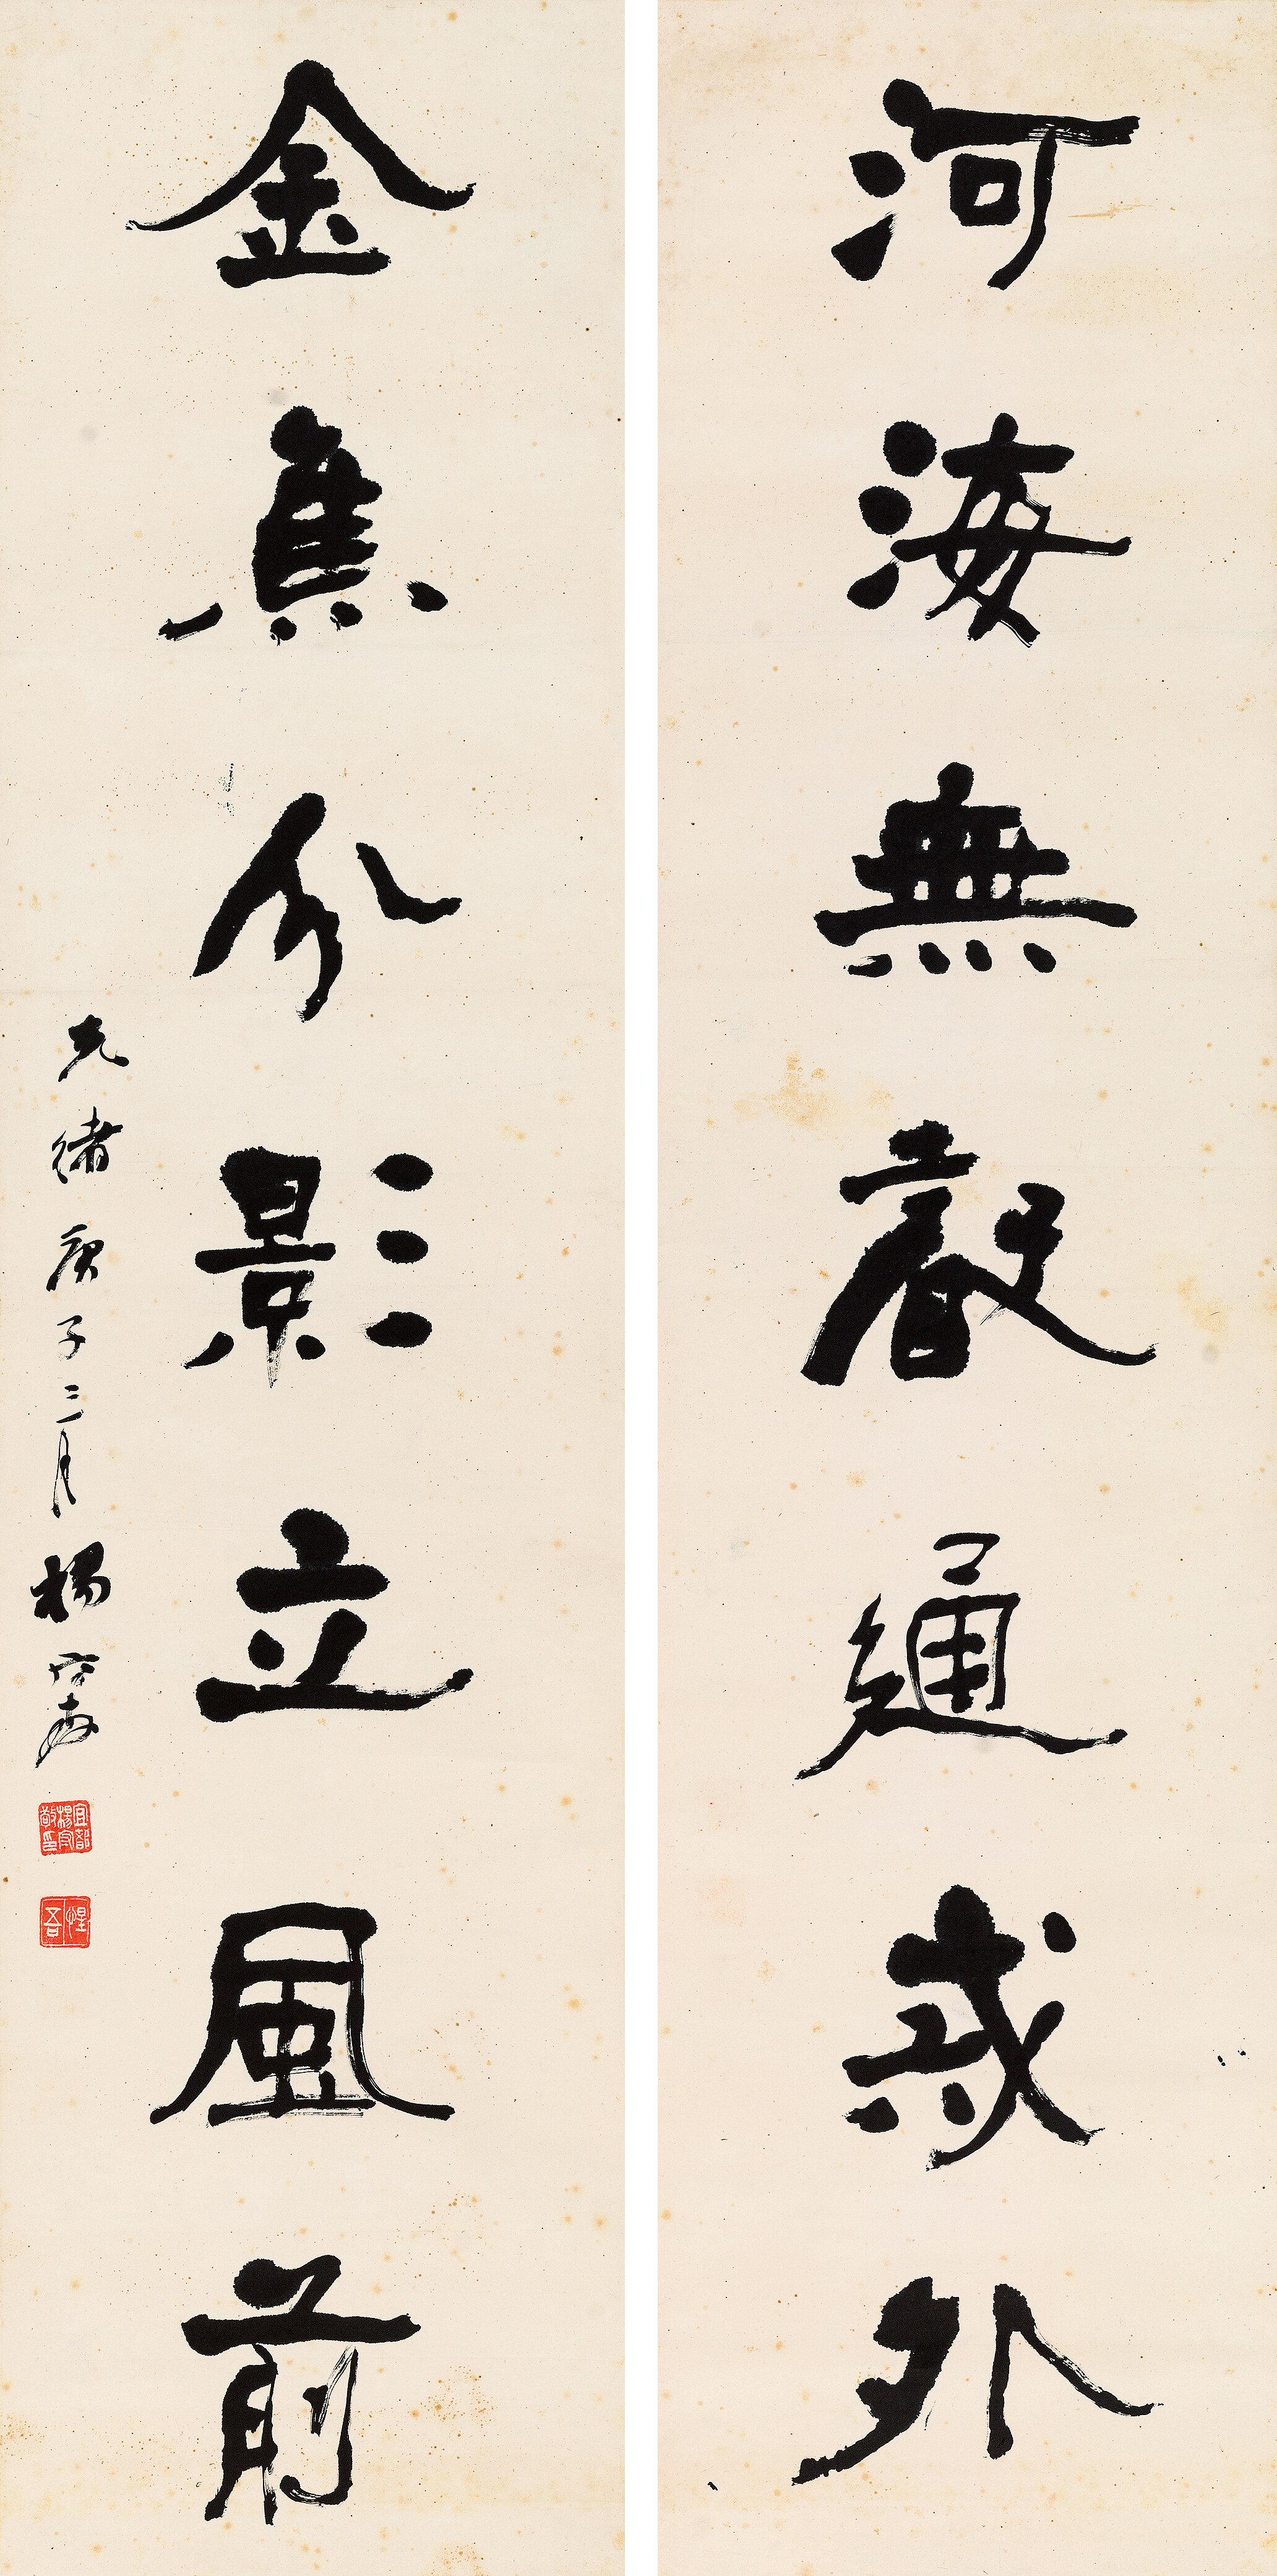 河海無通外
金焦分影立風前
光緒庚子三月楊守敬
宜都楊守敬印
惺吾